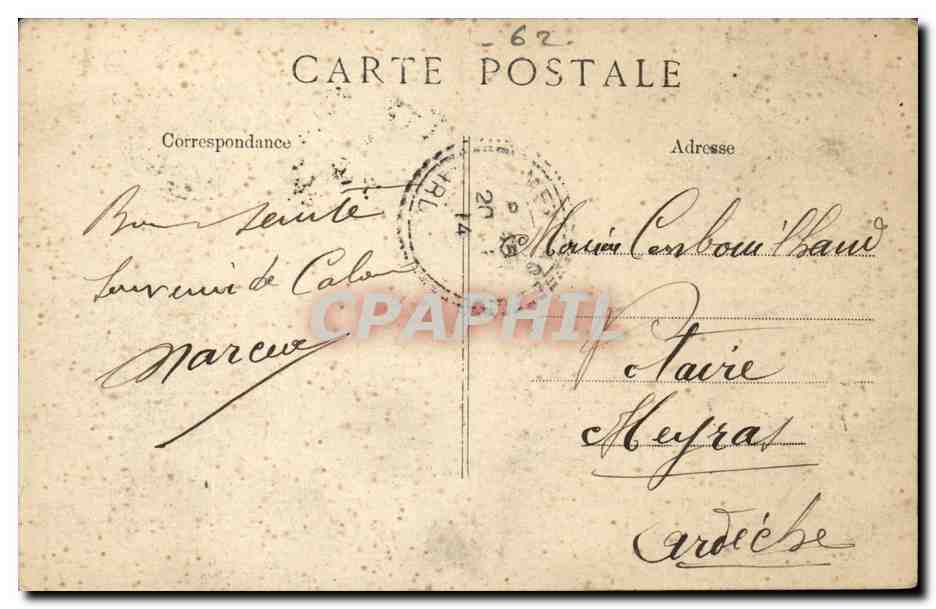 62
CARTE POSTALE
Correspondance
Adresse
Bonne santé
Souvenir de Calais
Marcel
20
14
CPAPHIL
Notaire
Meyras
Ardèche